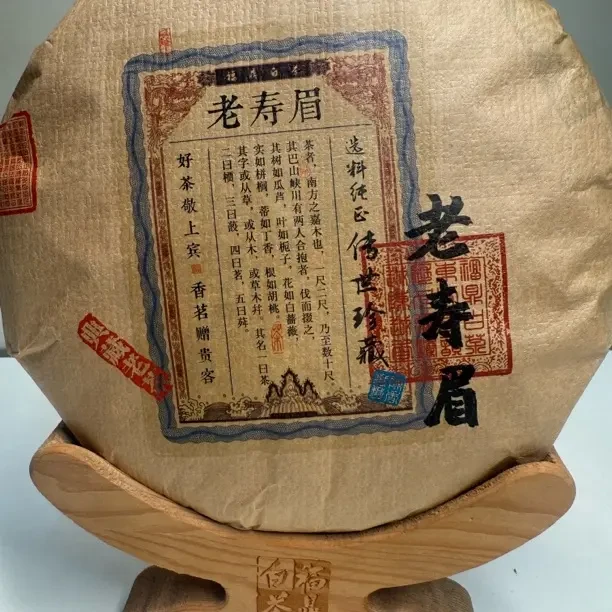 福鼎白茶
老寿眉
选料纯正 传世珍藏
茶者,南方之嘉木也,一尺二尺,乃至数十尺,
其巴山峡川有两人合抱者,伐而掇之,
其树如瓜芦,叶如栀子,花如白蔷薇,
实如栟榈,蒂如丁香,根如胡桃。
其字或从草,或从木,或草木并,其名一曰茶
二曰槚,三曰蔎,四曰茗,五曰荈。
好茶敬上宾 香茗赠贵客
老寿眉
福鼎
白茶